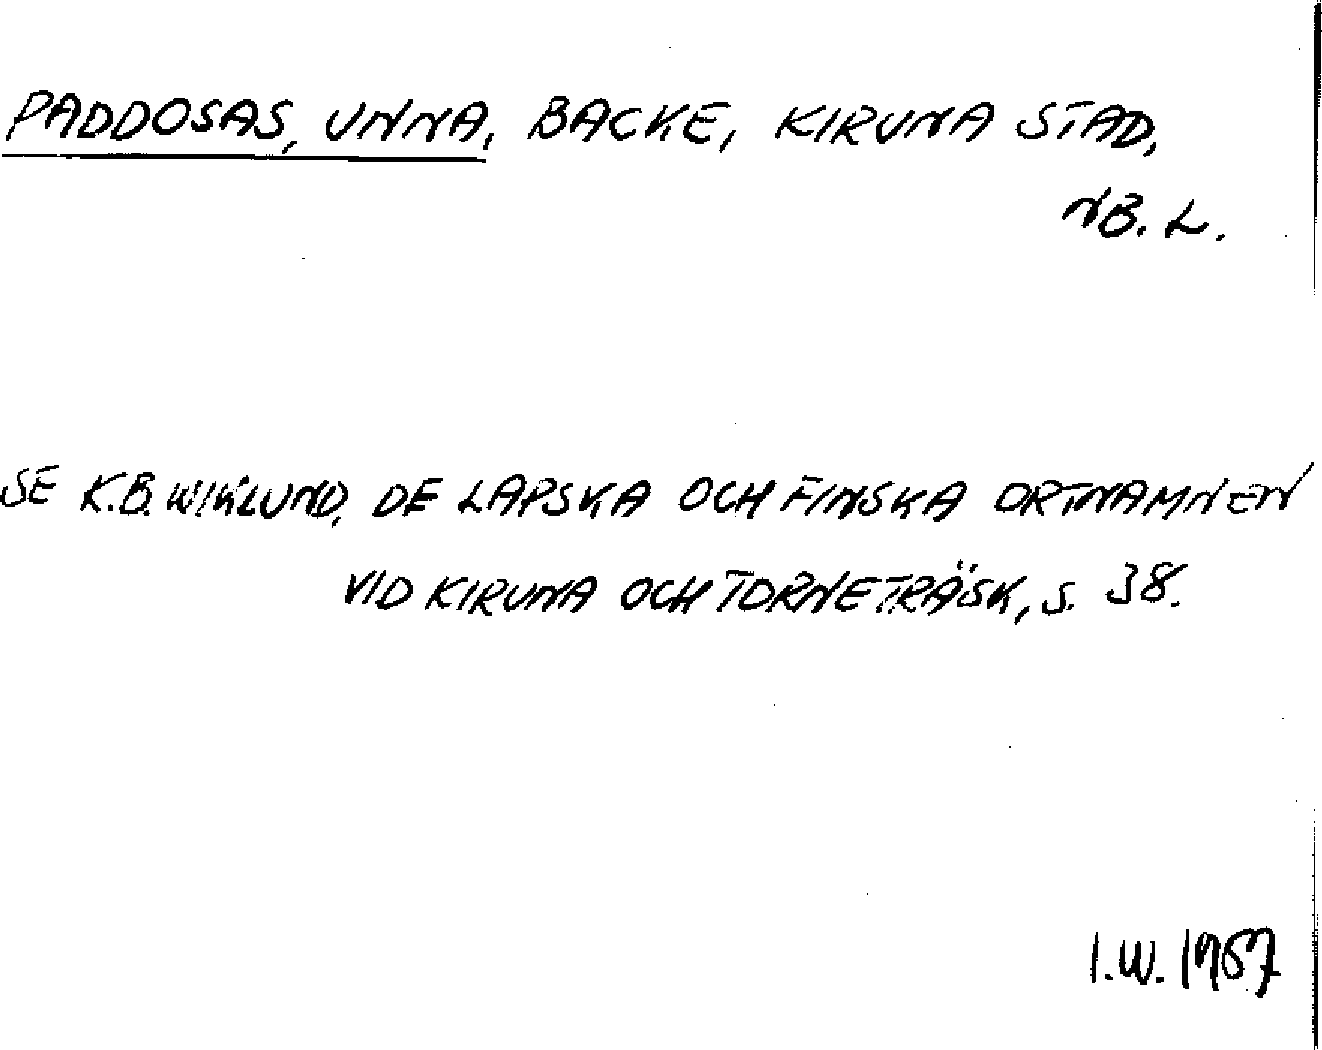 PADDOSAS, UNNA, BACKE, KIRUNA STAD,
NB. L.
SE K.B. WIKLUND, DE LAPSKA OCH FINSKA ORTNAMNEN
VID KIRUNA OCH TORNETRÄSK, S. 38.
I.W. 1967